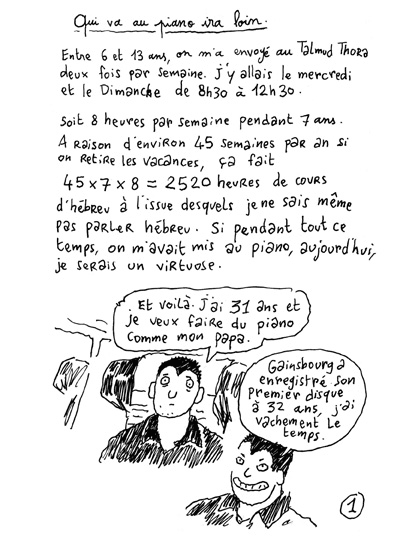 Qui va au piano ira loin.
Entre 6 et 13 ans, on m'a envoyé au Talmud Thora
deux fois par semaine. J'y allais le mercredi
et le Dimanche de 8h30 à 12h30.
Soit 8 heures par semaine pendant 7 ans.
A raison d'environ 45 semaines par an si
on retire les vacances, ça fait
45 x 7 x 8 = 2520 heures de cours
d'hébreu à l'issue desquels je ne sais même
pas parler hébreu. Si pendant tout ce
temps, on m'avait mis au piano, aujourd'hui,
je serais un virtuose.
Et voilà. J'ai 31 ans et
je veux faire du piano
comme mon papa.
Gainsbourg a
enregistré son
premier disque
à 32 ans, j'ai
vachement le
temps.
1